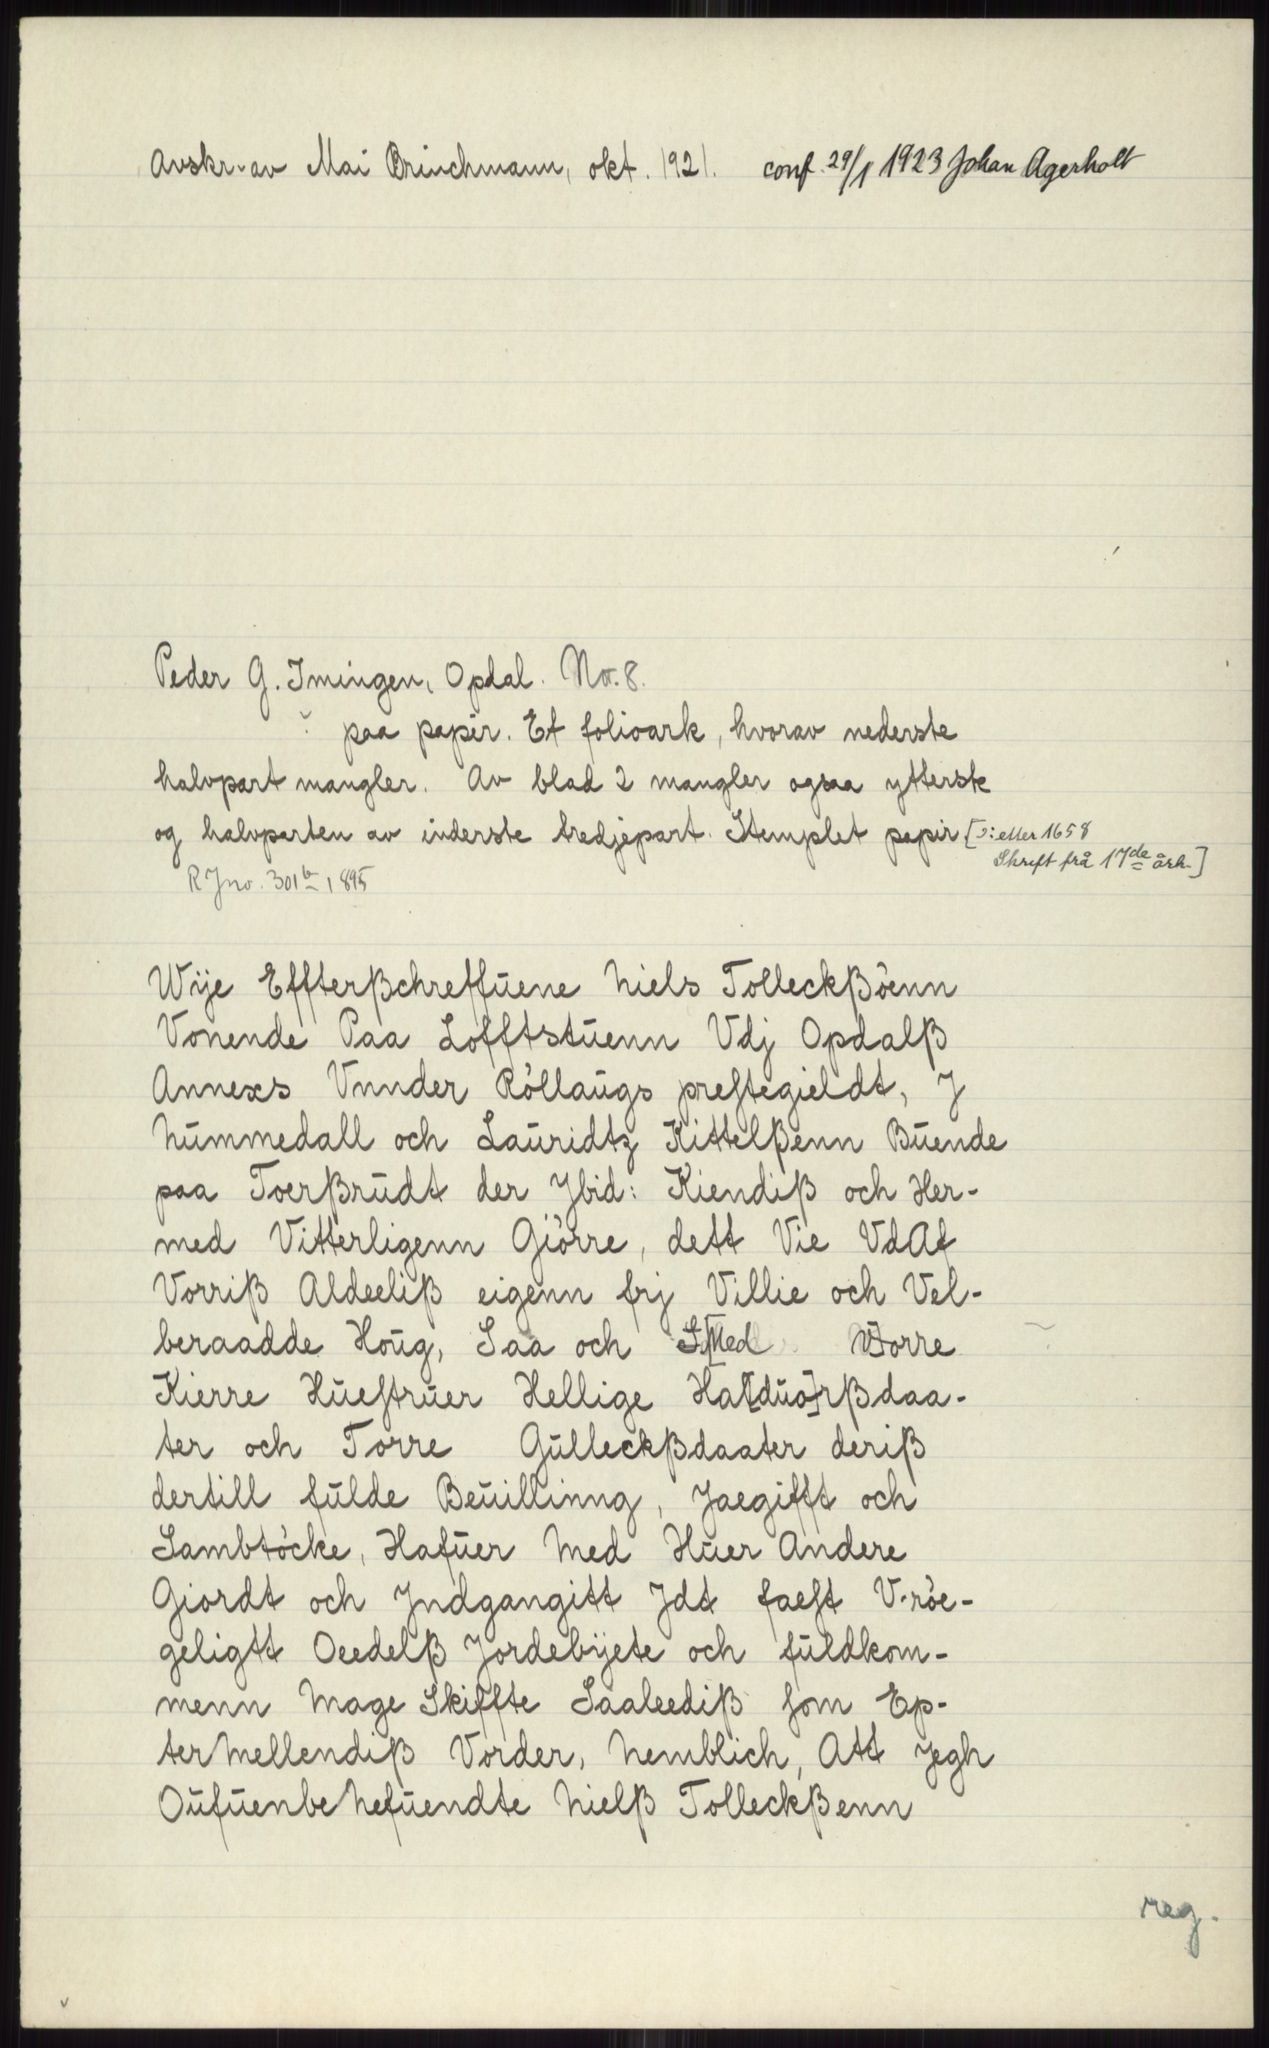 Avskr. av Mai Brinchmann, okt. 1921. conf. 29/1 1923 Johan Agerholt
Peder G. Imingen, Opdal. No. 8.
paa papir. Et folioark, hvorav nederste
halvpart mangler. Av blad 2 mangler ogsaa ytterste
og halvparten av inderste tredjepart. Stemplet papir [ɔ: etter 1658
Skrift frå 17de årh.]
R Jno. 301b 1895
Wije Effterßchreffuene Niels Tolleckßöenn
Vonende Paa Lofftstuenn Vdj Opdalß
Annexs Vnnder Röllaugs prestegieldt, J
Nummedall och Lauridtz Kittelßenn Buende
paa Toerßrudt der Jbid: Kiendiß och Her-
med Vitterligenn Giörre, dett Vie VdAf
Vorriß Aldeeliß eigenn frj Villie och Vel-
beraadde Houg, Saa och [Med Worre
Kierre Huestruer Hellige Hal[duo]rßdaa-
ter och Torre Gulleckßdaater deriß
dertill fulde Beuillinng, Jaegifft och
Sambtöcke, Hafuer Med Huer Andere
Giordt och Jndgangitt Jdt faest V-röe-
geligtt Oeedelß Jordebÿete och fuldkom-
menn Mage Skiffte Saaleediß som Ep-
ter Mellendiß Vorder, Nemblich, Att Jegh
Oufuenbe Nefuendte Nielß Tolleckßenn
reg.